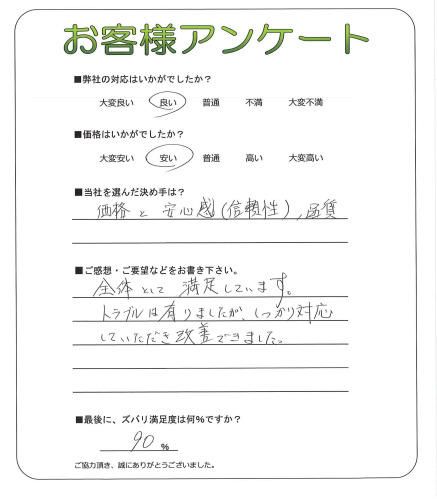 お客様アンケート
■弊社の対応はいかがでしたか？
大変良い 良い 普通 不満 大変不満
■価格はいかがでしたか？
大変安い 安い 普通 高い 大変高い
■当社を選んだ決め手は？
価格と安心感(信頼性),品質
■ご感想・ご要望などをお書き下さい。
全体として満足しています。
トラブルは有りましたが、しっかり対応
していただき改善できました。
■最後に、ズバリ満足度は何%ですか？
90 %
ご協力頂き、誠にありがとうございました。